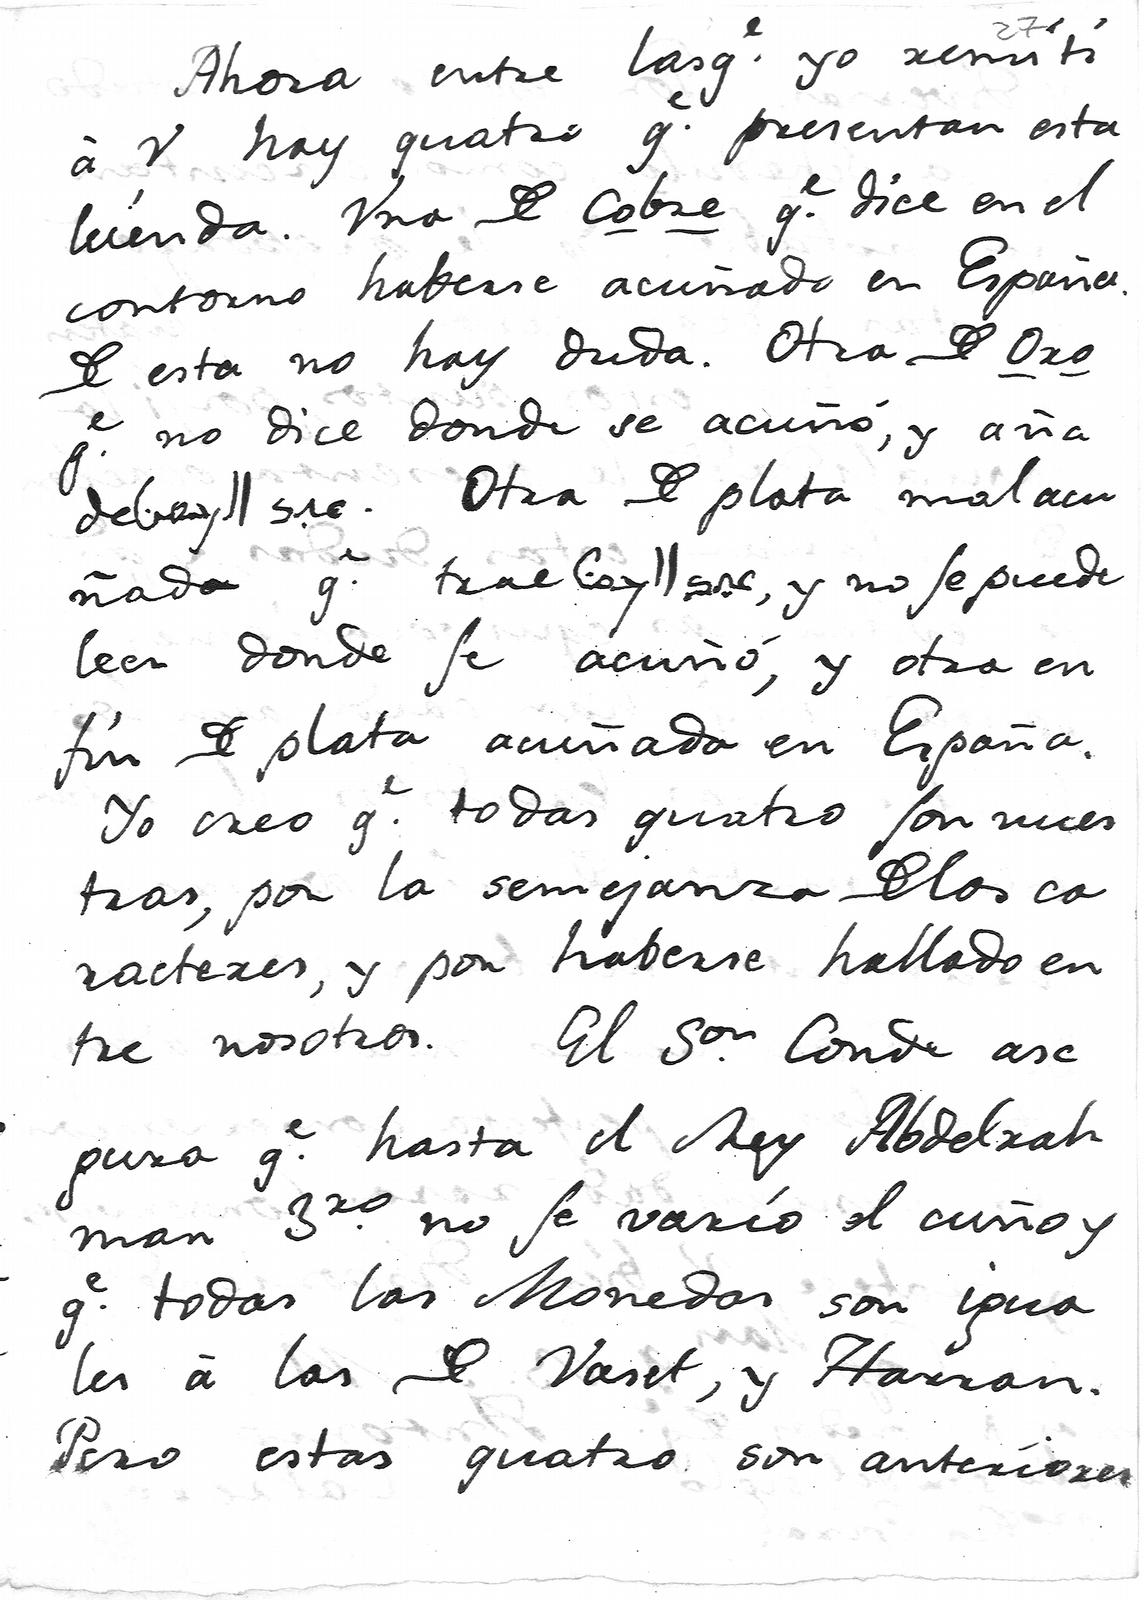 271
Ahora entre las q.e yo remití
à V hay quatro q.e presentan esta
léienda. Vna De Cobre q.e dice en el
contorno haberse acuñado en España.
De esta no hay duda. Otra De Oro
q.e no dice donde se acuñó, y aña
de
Otra De plata mal acu
ñada q.e trae , y no se puede
leer donde se acuñó, y otra en
fin De plata acuñada en España.
Yo creo q.e todas quatro son nues
tras, por la semejanza De los ca
racteres, y por haberse hallado en
tre nosotros. El S.or Conde ase
gura q.e hasta el Rey Abdelrah
man 3.ro no se varío el cuño y
q.e todas las Monedas son igua
les à las De Vaset, y Harran.
Pero estas quatro son anteriores